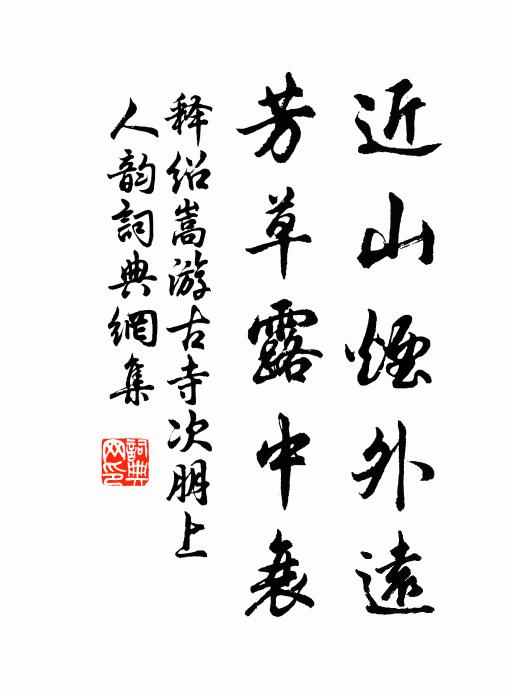 近山煙外遠
芳草露中衰
释绍嵩游古寺次朋上
人韵詞典網集
詞典
网印